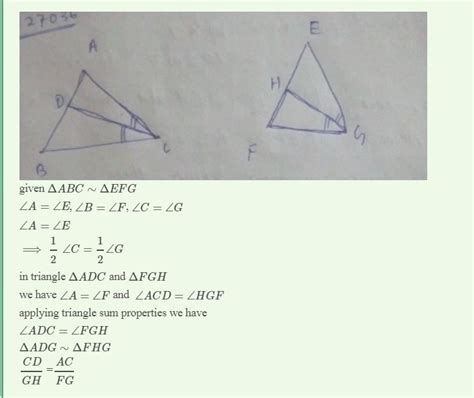 27036
E
A
H
D
G
C
F
B
given ΔABC ∼ ΔEFG
∠A = ∠E, ∠B = ∠F, ∠C = ∠G
∠A = ∠E
⟹ 1/2 ∠C = 1/2 ∠G
in triangle ΔADC and ΔFGH
we have ∠A = ∠F and ∠ACD = ∠HGF
applying triangle sum properties we have
∠ADC = ∠FGH
ΔADG ∼ ΔFHG
CD/GH = AC/FG